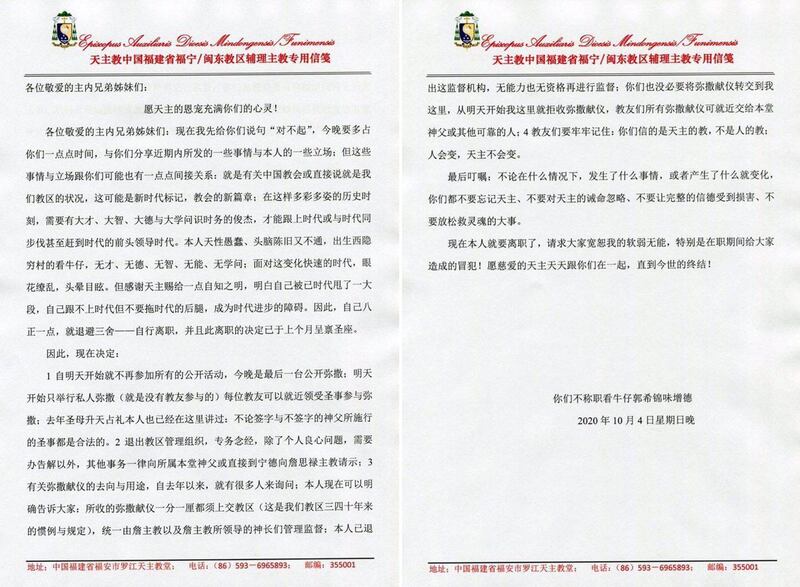 Episcopus Auxiliaris Diocesis Mindongensis/Funimensis
天主教中国福建省福宁/闽东教区辅理主教专用信笺
各位敬爱的主内兄弟姊妹们：
愿天主的恩宠充满你们的心灵！
各位敬爱的主内兄弟姊妹们：现在我先给你们说句“对不起”，今晚要多占
你们一点点时间，与你们分享近期内所发的一些事情与本人的一些立场；但这些
事情与立场跟你们可能也有一点点间接关系：就是有关中国教会或直接说就是我
们教区的状况，这可能是新时代标记，教会的新篇章；在这样多彩多姿的历史时
刻，需要有大才、大智、大德与大学问识时务的俊杰，才能跟上时代或与时代同
步伐甚至赶到时代的前头领导时代。本人天性愚蠢、头脑陈旧又不通，出生西隐
穷村的看牛仔，无才、无德、无智、无能、无学问；面对这变化快速的时代，眼
花缭乱，头晕目眩。但感谢天主赐给一点自知之明，明白自己被已时代甩了一大
段，自己跟不上时代但不要拖时代的后腿，成为时代进步的障碍。因此，自己八
正一点，就退避三舍——自行离职，并且此离职的决定已于上个月呈禀圣座。
因此，现在决定：
1 自明天开始就不再参加所有的公开活动，今晚是最后一台公开弥撒；明天
开始只举行私人弥撒（就是没有教友参与的）每位教友可以就近领受圣事参与弥
撒；去年圣母升天占礼本人也已经在这里讲过：不论签字与不签字的神父所施行
的圣事都是合法的。2 退出教区管理组织，专务念经，除了个人良心问题，需要
办告解以外，其他事务一律向所属本堂神父或直接到宁德向詹思禄主教请示；3
有关弥撒献仪的去向与用途，自去年以来，就有很多人来询问；本人现在可以明
确告诉大家：所收的弥撒献仪一分一厘都须上交教区（这是我们教区三四十年来
的惯例与规定），统一由詹主教以及詹主教所领导的神长们管理监督；本人已退
地址：中国福建省福安市罗江天主教堂； 电话：（86）593－6965893； 邮编：355001
Episcopus Auxiliaris Diocesis Mindongensis/Funimensis
天主教中国福建省福宁/闽东教区辅理主教专用信笺
出这监督机构，无能力也无资格再进行监督；你们也没必要将弥撒献仪转交到我
这里，从明天开始我这里就拒收弥撒献仪，教友们所有弥撒献仪可就近交给本堂
神父或其他可靠的人；4 教友们要牢牢记住：你们信的是天主的教，不是人的教；
人会变，天主不会变。
最后叮嘱：不论在什么情况下，发生了什么事情，或者产生了什么就变化，
你们都不要忘记天主、不要对天主的诫命忽略、不要让完整的信德受到损害、不
要放松救灵魂的大事。
现在本人就要离职了，请求大家宽恕我的软弱无能，特别是在职期间给大家
造成的冒犯！愿慈爱的天主天天跟你们在一起，直到今世的终结！
你们不称职看牛仔郭希锦味增德
2020 年 10 月 4 日星期日晚
地址：中国福建省福安市罗江天主教堂； 电话：（86）593－6965893； 邮编：355001